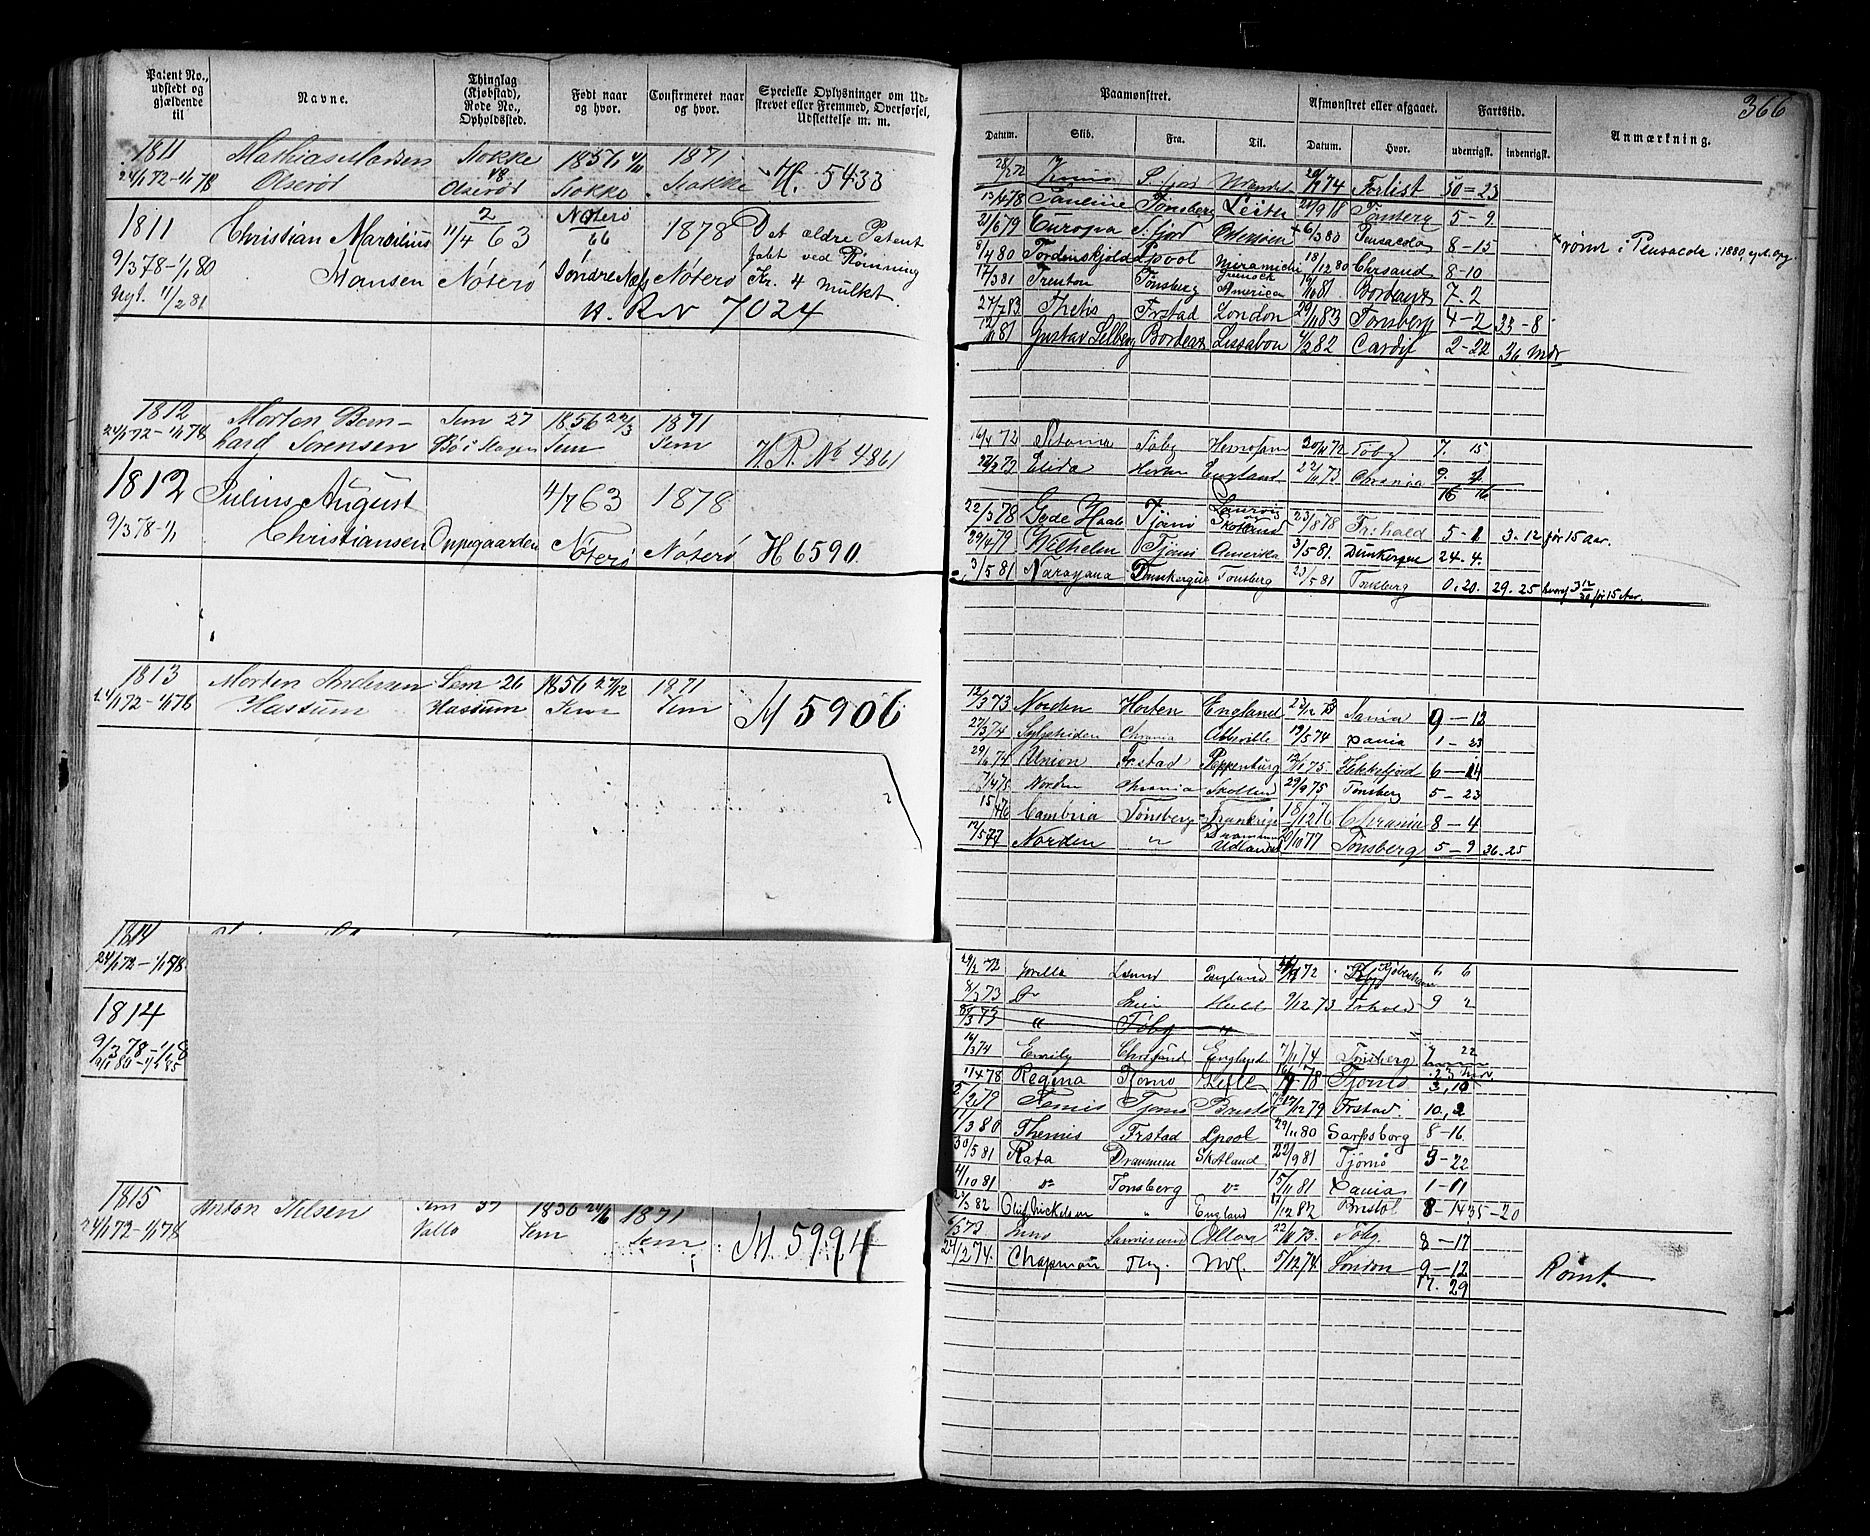 366
Patent No., udstedt og gjældende til
Navne.
Thinglag (Kjøbstad), Rode No., Opholdssted.
Født naar og hvor.
Confirmeret naar og hvor.
Specielle Oplysninger om Udskrevet eller Fremmed, Overførsel, Udslettelse m. m.
Paamønstret.
Afmønstret eller afgaaet.
Fartstid.
Anmærkning.
Datum. Skib. Fra. Til. Datum. Hvor. udenrigst. indenrigst.
1811 Mathias Madsen Stokke 1856 1871
24/1 72-1/1 78 Olserød 48 Olserød Stokke Stokke H. 5433
1811 Christian Marsilius 11/4 63 Nøterø 1878 Det ældre Patent
9/3 78-1/1 80 Hansen Nøterø Søndre Næs Nøterø tabt ved Rømning
Nyt. 11/2 81 Kr. 4 mulket.
H. R. N 7024
1812 Morten Bern- Sem 27 1856 22/3 1871
24/1 72-1/1 78 hard Sørensen Bø i Slagen Sem Sem H. R. No 4861
1812 Julius August 4/7 63 1878
9/3 78-1/1 Christiansen Oppegaarden Nøterø Nøterø H 6590
1813 Morten Andersen Sem 26 1856 27/12 1871
24/1 72-1/1 78 Hassum Hassum Sem Sem H 5906
1814
24/1 72-1/1 78
1814
9/3 78-1/1 8
1815 Anton Nilsen Sem 37 1856 24/6 1871
24/1 72-1/1 78 Vallø Sem Sem H 5994
28/2 72 Venus S. fjord 74 Forlist 30=23
13/4 78 Pauline Tønsberg Leith 21/9 78 Tønsberg 5-9
21/6 79 Europa S. fjord Østersøen 6/3 80 Pensacola 8-15 rømt i Pensacola 1880
5/4 80 Tordenskjold Lpool Miramichi 18/12 80 Chrsand 8-10
17/3 81 Trenton Tønsberg Grenock America 81 Bordeaux 7-2
27/7 83 Thetis Frstad London 29/11 83 Tønsberg 4-2 33-8
12/11 81 Gustav Selberg Bordeaux Lissabon 4/2 82 Cardif 2-22 36 Mdr
16/4 72 Tøbg 20/11 72 Tøbg 7. 15
27/2 73 Elida Horten England 27/11 73 Chrania 9.
16 16
22/3 78 Gode Haab Tjømø Laurvig og Skotland 23/8 78 Fr: hald 5-1 3-12 før 15 Aar.
29/4 79 Wilhelm Tjømø Amerika 3/5 81. Dunkerque 24-4.
3/5 81 Narayana Dunkerque Tønsberg 23/5 81 Tønsberg 0.20. 29.25 hvoraf 3 12/30 før 15 Aar.
12/3 73 Norden Horten England 23/12 73 Xania 9-12
27/3 74 Sylphiden Chrania Abbeville 19/5 74 Xania 1-23
29/6 74 Union Frstad Pappenburg 12/1 75 Flekkefjord 6-14
7/4 75 Norden Chrania Skotland 29/9 75 Tønsberg 5-23
15/4 76 Cambria Tønsberg Frankrige 18/12 76 Chrania 8-4
12/5 77 Norden " Drammen Udlandet 77 Tønsberg 5-9 36-25
29/2 72 England 72 Kjøbenhavn 6 6
8/3 73 Do Hull 9/12 73 Frhald 9 2
73 " Tøbg "
16/3 74 Emily Chrsund England 7/11 74 Tønsberg 7 22
23 Mdr.
11/4 78 Regina Tjømø 78 Tjømø 3,10
2/2 79 Temis Tjømø Bristol 17/12 79 Frstad 10,2
1/3 80 Themis Frstad Lpool 29/11 80 Sarpsborg 8-16
30/5 81 Rota Drammen Skotland 22/9 81 Tjømø 3-22
4/10 81 do Tønsberg do 15/11 81 Xania 1-11
82 Oluf Nickelsen " England 12 82 Bristol 8-14 35-20
6/3 73 22/11 73. Tøbg. 8-17
24/2 74. Chapman 5/12 74. London 9-12 Rømt.
17. 29